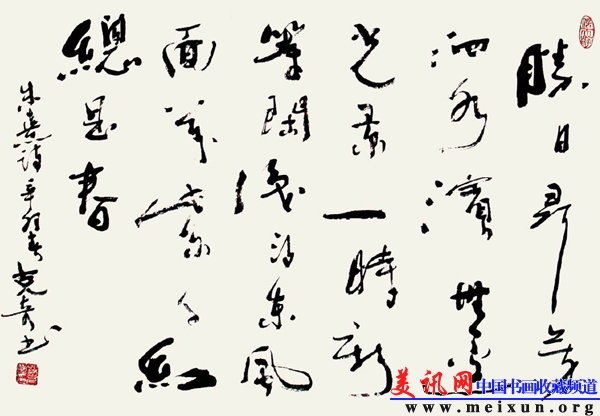 勝日尋芳
泗水濱無邊
光景一時新
等閑識得東風
面萬紫千紅
總是春
朱熹詩辛卯春克奇书
美讯网 中国书画收藏频道
www.meixun.org